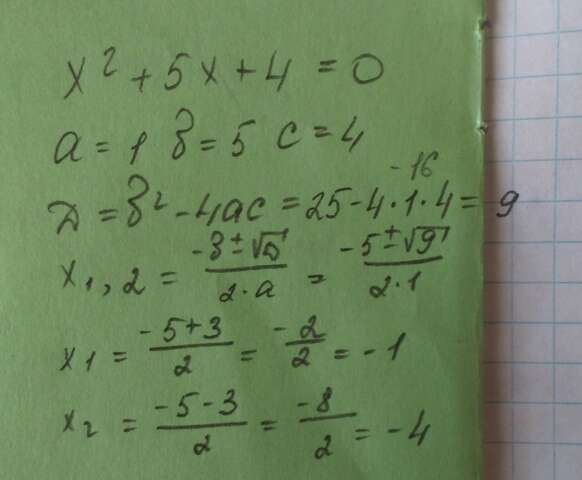 x² + 5x + 4 = 0
a = 1 b = 5 c = 4
-16
D = b² - 4ac = 25 - 4·1·4 = 9
x1,2 = (-b ± √D)/(2·a) = (-5 ± √9)/(2·1)
x1 = (-5+3)/2 = -2/2 = -1
x2 = (-5-3)/2 = -8/2 = -4